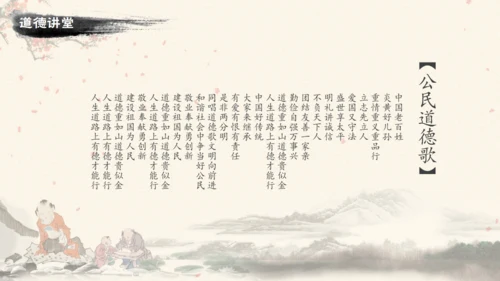 道德讲堂
【公民道德歌】
中国老百姓
炎黄好儿孙
重情重义重品行
立志先立人
爱国又守法
盛世享太平
明礼讲诚信
不负天下人
团结友善一家亲
勤俭自强万事兴
道德重如山道德贵似金
人生道路上有德才能行
中国好传统
大家来继承
有爱有恨有责任
是非两分明
同唱道德歌文明向前进
和谐社会中争当好公民
建设祖国为人民
敬业奉献勇创新
道德重如山道德贵似金
人生道路上有德才能行
敬业奉献勇创新
建设祖国为人民
道德重如山道德贵似金
人生道路上有德才能行